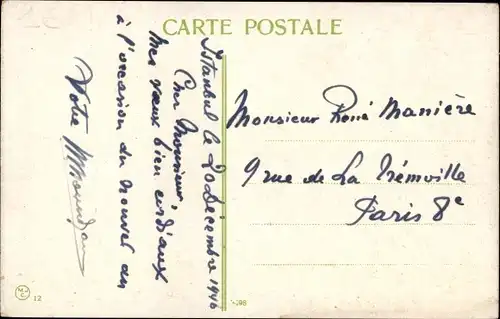 CARTE POSTALE
Istanbul le 20 Décembre 1946
Cher Monsieur,
Mes vœux bien cordiaux
à l'occasion du nouvel an
Votre
Monsieur René Manière
9 rue de La Trémoille
Paris 8e
12